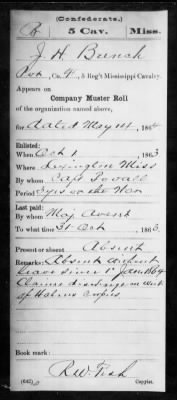 (Confederate.)
B 5 Cav. Miss.
J. H. Bunch
Pvt, Co. F, 5 Reg't Mississippi Cavalry.
Appears on
Company Muster Roll
of the organization named above,
for dated May 1st, 1864
Enlisted:
When Oct 1, 1863
Where Lexington Miss
By whom Capt
Period 3 yrs or the War
Last paid:
By whom Maj Avent
To what time 31 Oct, 1863.
Present or absent Absent
Remarks: Absent without
leave since 1 Jan 1864
Claims discharge on
of
Book mark:
R W Fish
(642) Copyist.